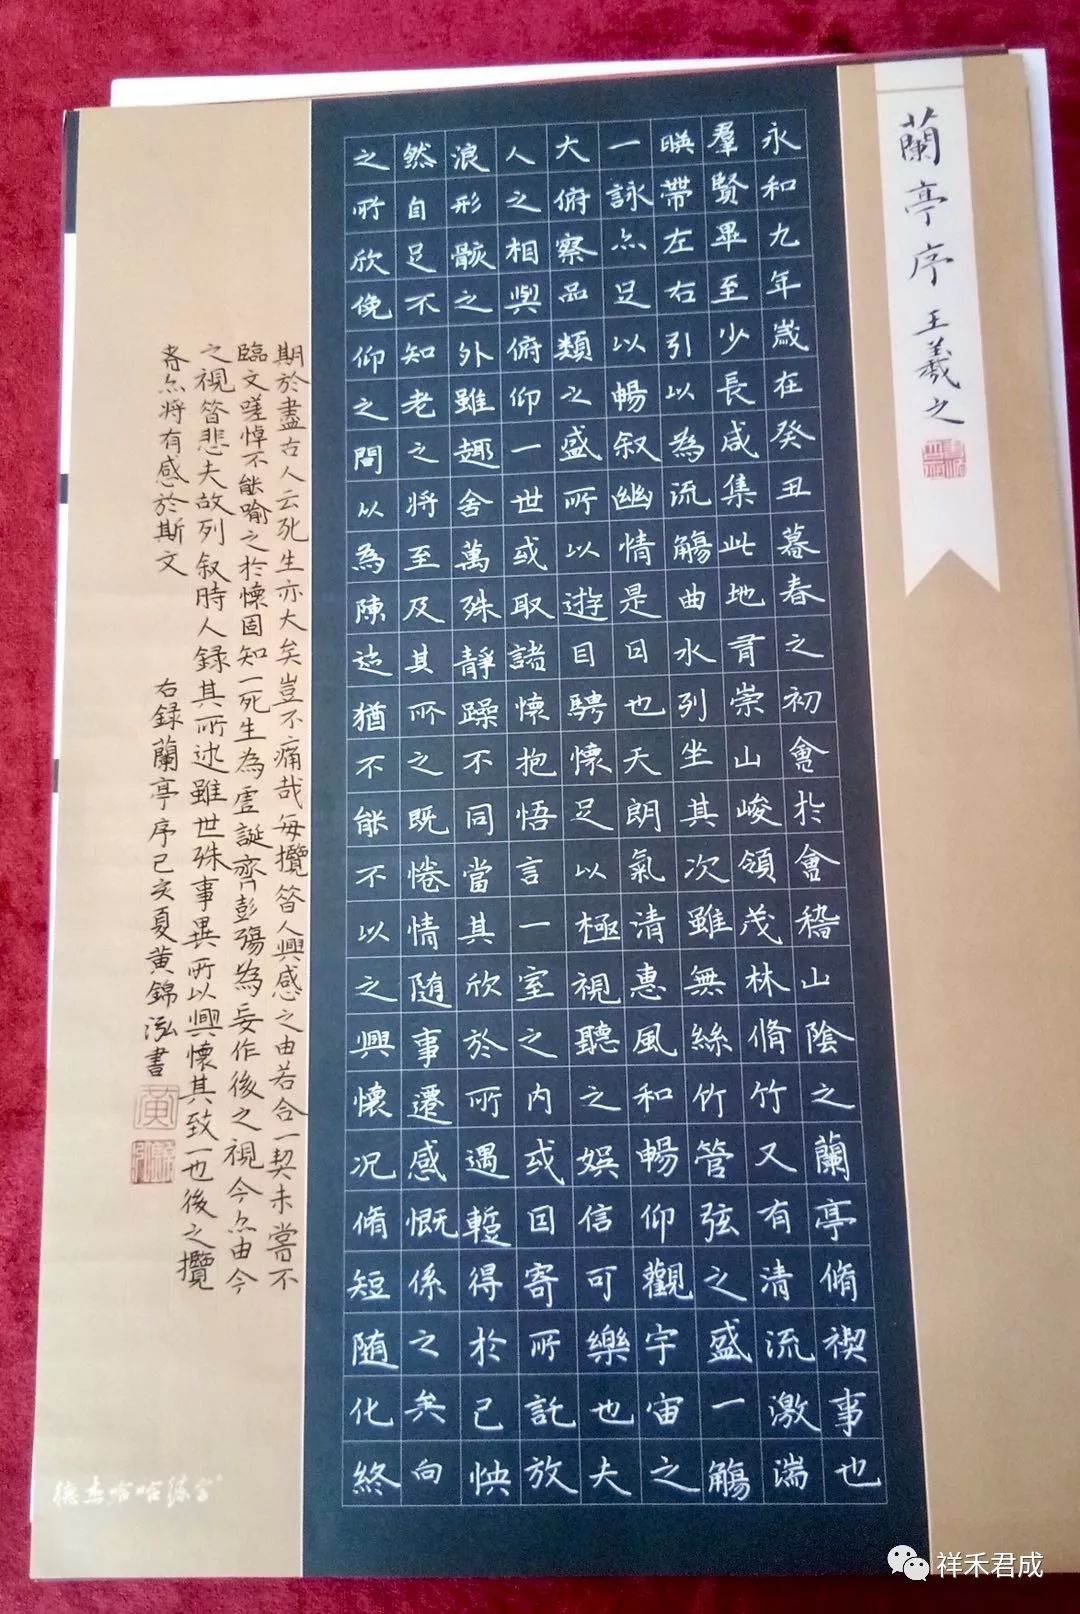 蘭亭序 王羲之
永和九年歲在癸丑暮春之初會於會稽山陰之蘭亭脩禊事也
羣賢畢至少長咸集此地有崇山峻領茂林脩竹又有清流激湍
暎帶左右引以為流觴曲水列坐其次雖無絲竹管弦之盛一觴
一詠亦足以暢叙幽情是日也天朗氣清惠風和暢仰觀宇宙之
大俯察品類之盛所以遊目騁懷足以極視聽之娛信可樂也夫
人之相與俯仰一世或取諸懷抱悟言一室之內或因寄所託放
浪形骸之外雖趣舍萬殊靜躁不同當其欣於所遇蹔得於己怏
然自足不知老之將至及其所之既惓情随事遷感慨係之矣向
之所欣俛仰之間以為陳迹猶不能不以之興懷況脩短随化終
期於盡古人云死生亦大矣豈不痛哉每攬昔人興感之由若合一契未嘗不
臨文嗟悼不能喻之於懷固知一死生為虛誕齊彭殤為妄作後之視今亦由今
之視昔悲夫故列叙時人録其所述雖世殊事異所以興懷其致一也後之攬
者亦將有感於斯文
右録蘭亭序己亥夏黃錦泓書
黃
德杰哈哈练字
祥禾君成